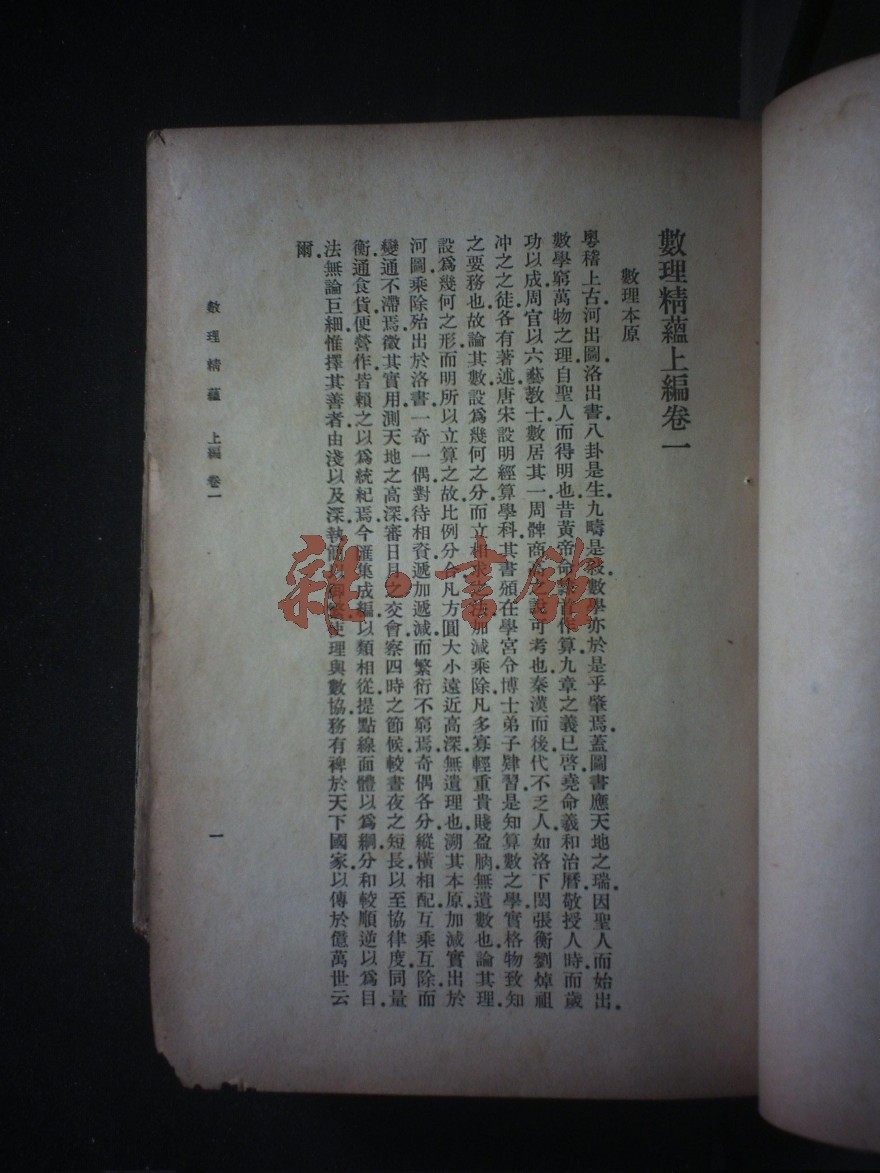 數理精蘊上編卷一
數理本原
粵稽上古河出圖洛出書八卦是生九疇是敍數學亦於是乎肇焉蓋圖書應天地之瑞因聖人而始出
數學窮萬物之理自聖人而得明也昔黃帝命隸首作算九章之義已啓堯命羲和治曆敬授人時而歲
功以成周官以六藝敎士數居其一周髀商高之說可考也秦漢而後代不乏人如洛下閎張衡劉焯祖
冲之之徒各有著述唐宋設明經算學科其書頒在學宮令博士弟子肄習是知算數之學實格物致知
之要務也故論其數設爲幾何之分而立相求之法加減乘除凡多寡輕重貴賤盈朒無遺數也論其理
設爲幾何之形而明所以立算之故比例分合凡方圓大小遠近高深無遺理也溯其本原加減實出於
河圖乘除殆出於洛書一奇一偶對待相資遞加遞減而繁衍不窮焉奇偶各分縱橫相配互乘互除而
變通不滯焉徵其實用測天地之高深審日月之交會察四時之節候較晝夜之短長以至協律度同量
衡通食貨便營作皆賴之以爲統紀焉今匯集成編以類相從提點線面體以爲綱分和較順逆以爲目
法無論巨細惟擇其善者由淺以及深執簡以御繁使理與數協務有裨於天下國家以傳於億萬世云
爾
數理精蘊 上編 卷一
一
雜·書館